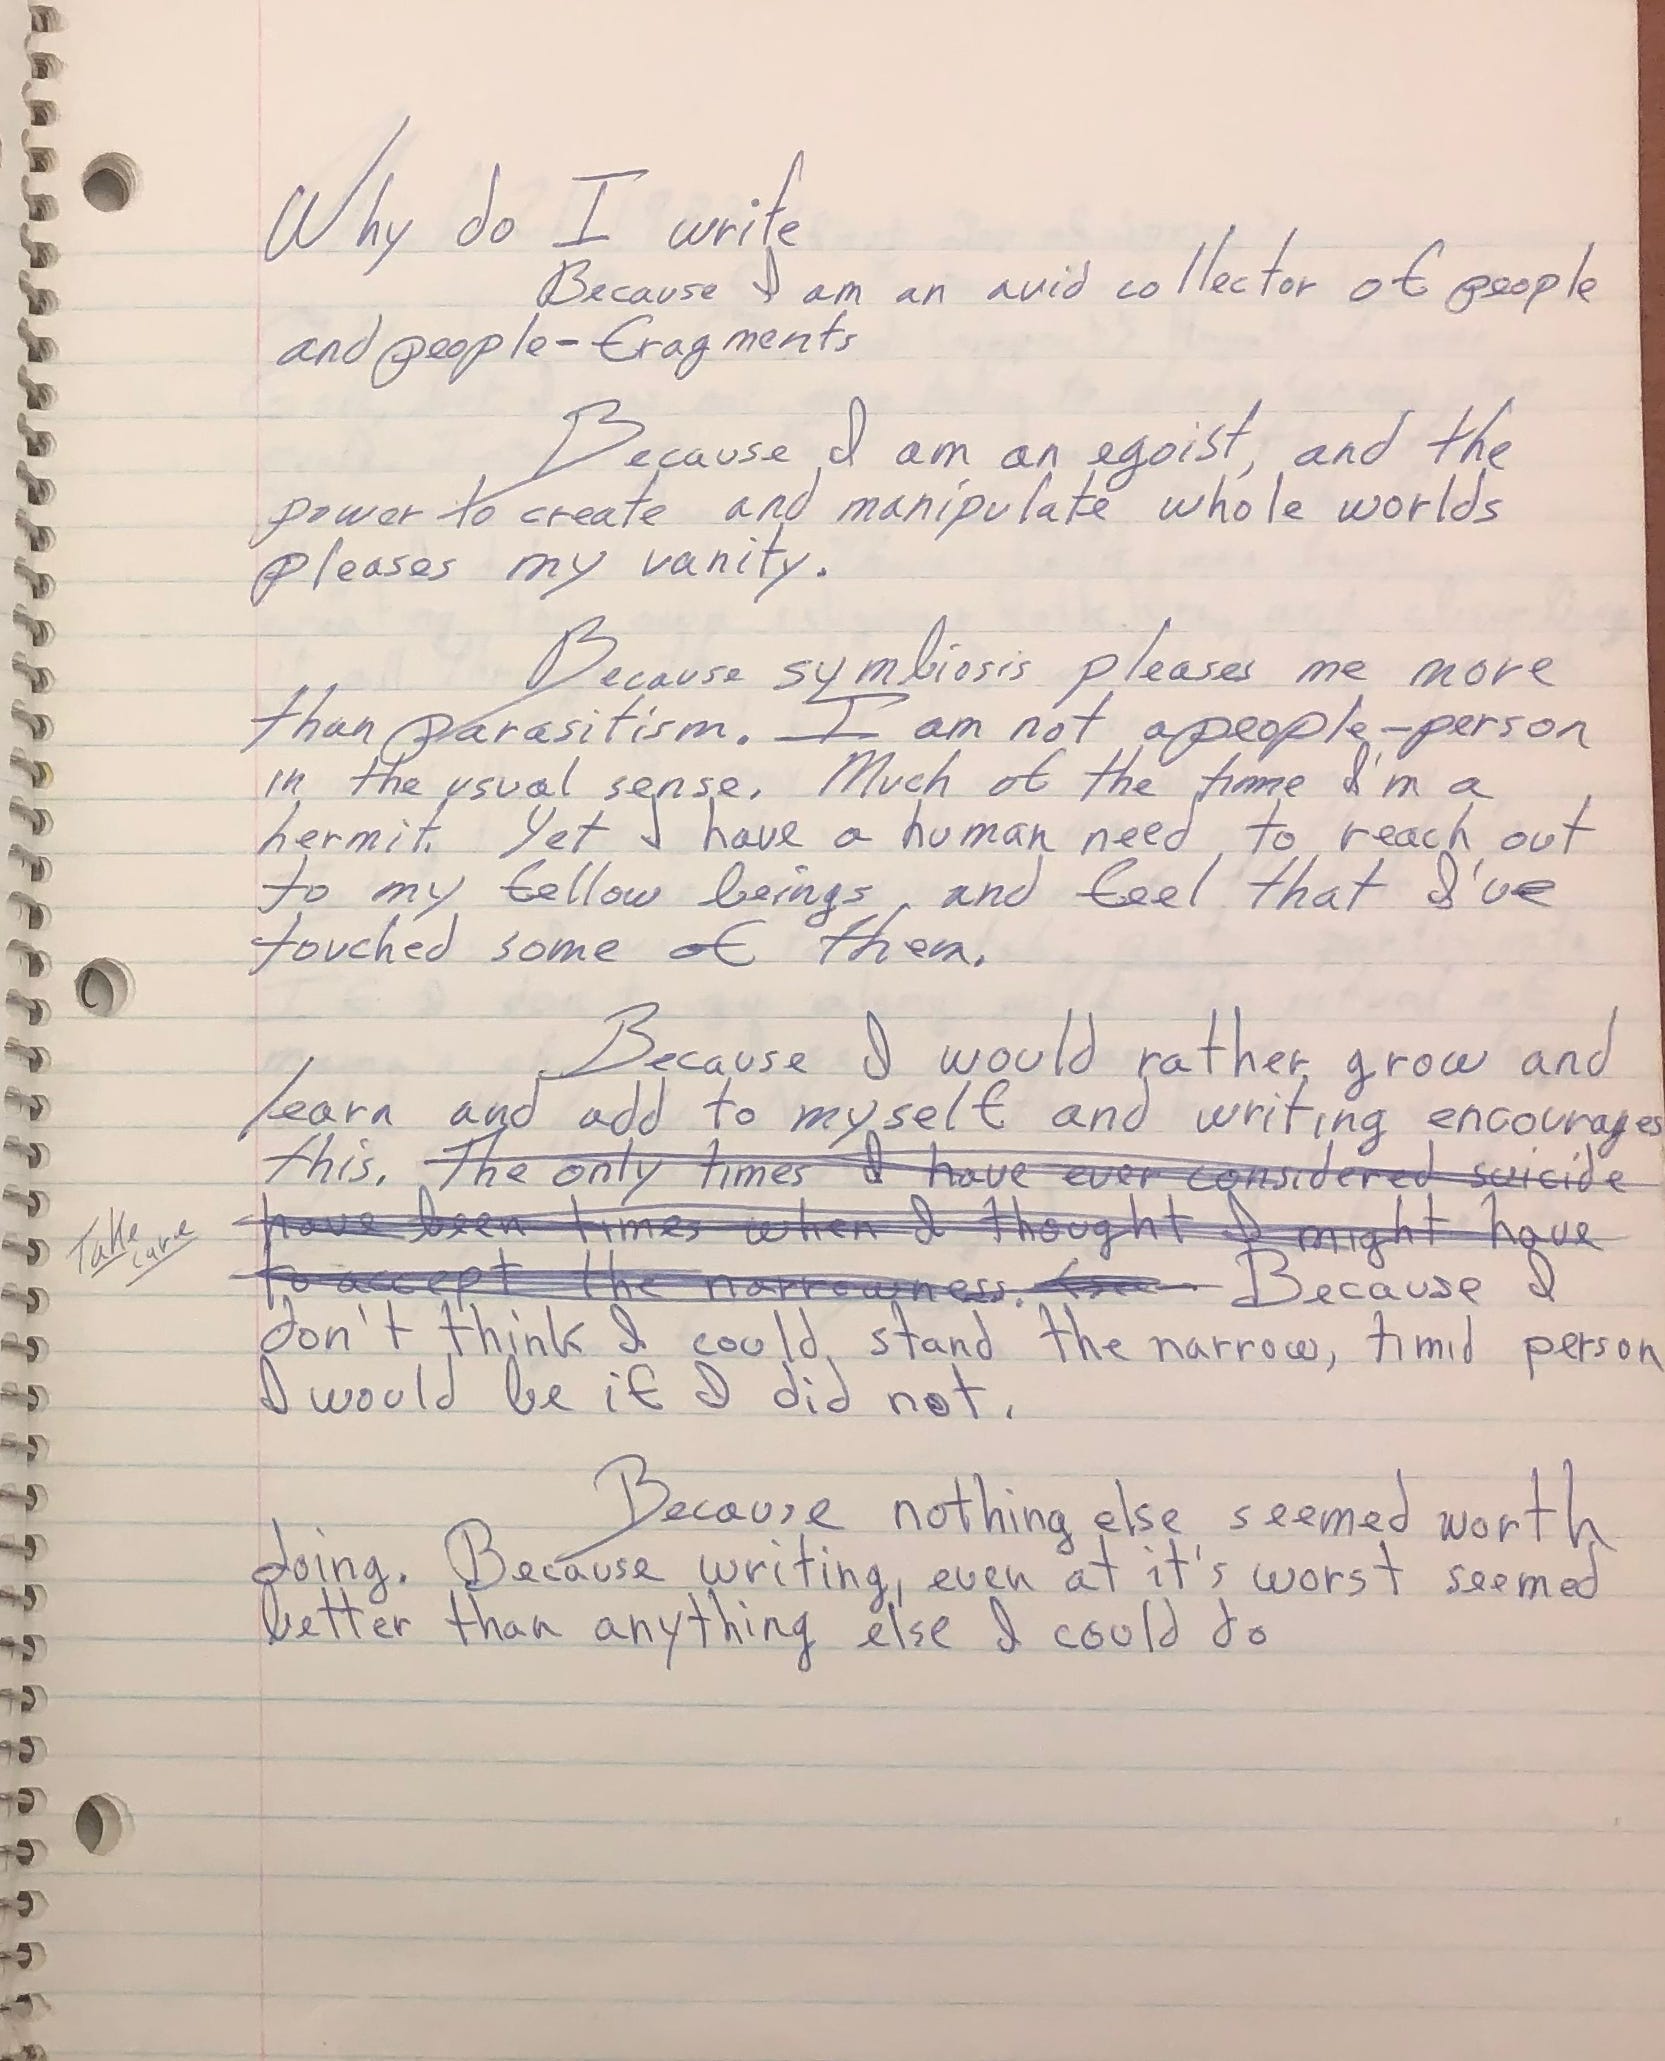 Why do I write
Because I am an avid collector of people
and people-fragments
Because I am an egoist, and the
power to create and manipulate whole worlds
pleases my vanity.
Because symbiosis pleases me more
than parasitism. I am not a people-person
in the usual sense. Much of the time I'm a
hermit. Yet I have a human need to reach out
to my fellow beings and feel that I've
touched some of them.
Because I would rather grow and
learn and add to myself and writing encourages
this. The only times I have ever considered suicide
Take
care
have been times when I thought I might have
to accept the narrowness. Because I
don't think I could stand the narrow, timid person
I would be if I did not.
Because nothing else seemed worth
doing. Because writing, even at it's worst seemed
better than anything else I could do